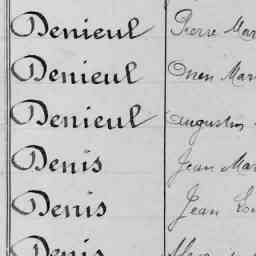 Denieul Pierre Mar
Denieul Onen Mar
Denieul Augustin
Denis Jean Mar
Denis Jean Lou
Denis